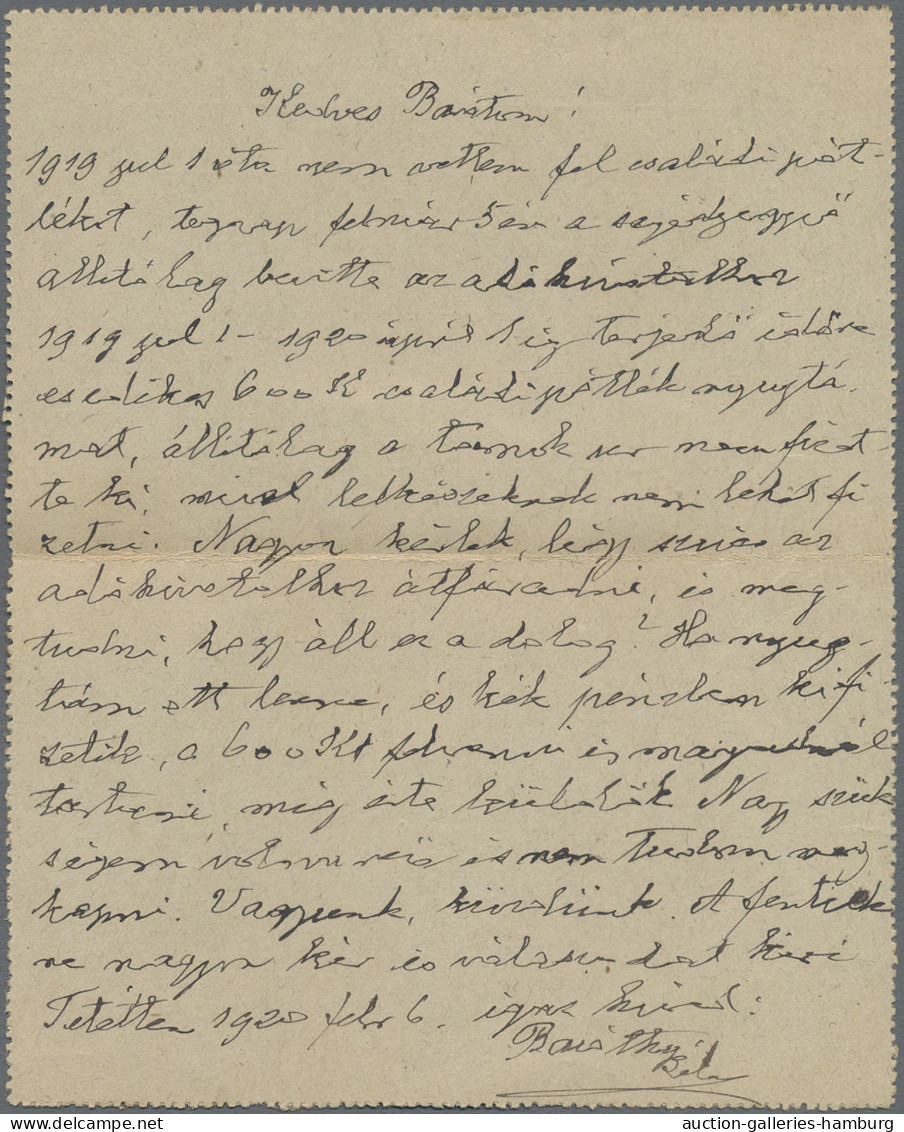 Kedves Barátom!
1919 jul 1 óta nem vettem fel családi pót-
lékot, tegnap február 5én a segédjegyző
állitólag bevitte az adóhivatalhoz
1919 jul 1 - 1920 ápril 1 ig terjedő időre
esedékes 600 K családi pótlék nyugtá-
mat, állitólag a tárnok ur nem fizet-
te ki, mivel lelkészeknek nem lehet fi
zetni. Nagyon kérlek, légy szives az
adóhivatalhoz átfáradni, és meg-
tudni, hogy áll ez a dolog? Ha nyug-
tám ott lenne, és kék pénzben kifi-
zetik, a 600 Kt felvenni és magadnál
tartani, mig érte küldök Nagy szük
ségem volna reá és nem tudom meg-
kapni. Vagyunk, küzdünk. A fentiek
re nagyon kér és válaszodat kéri
Tetétlen 1920 febr 6. igaz hived:
Béla
auction-galleries-hamburg